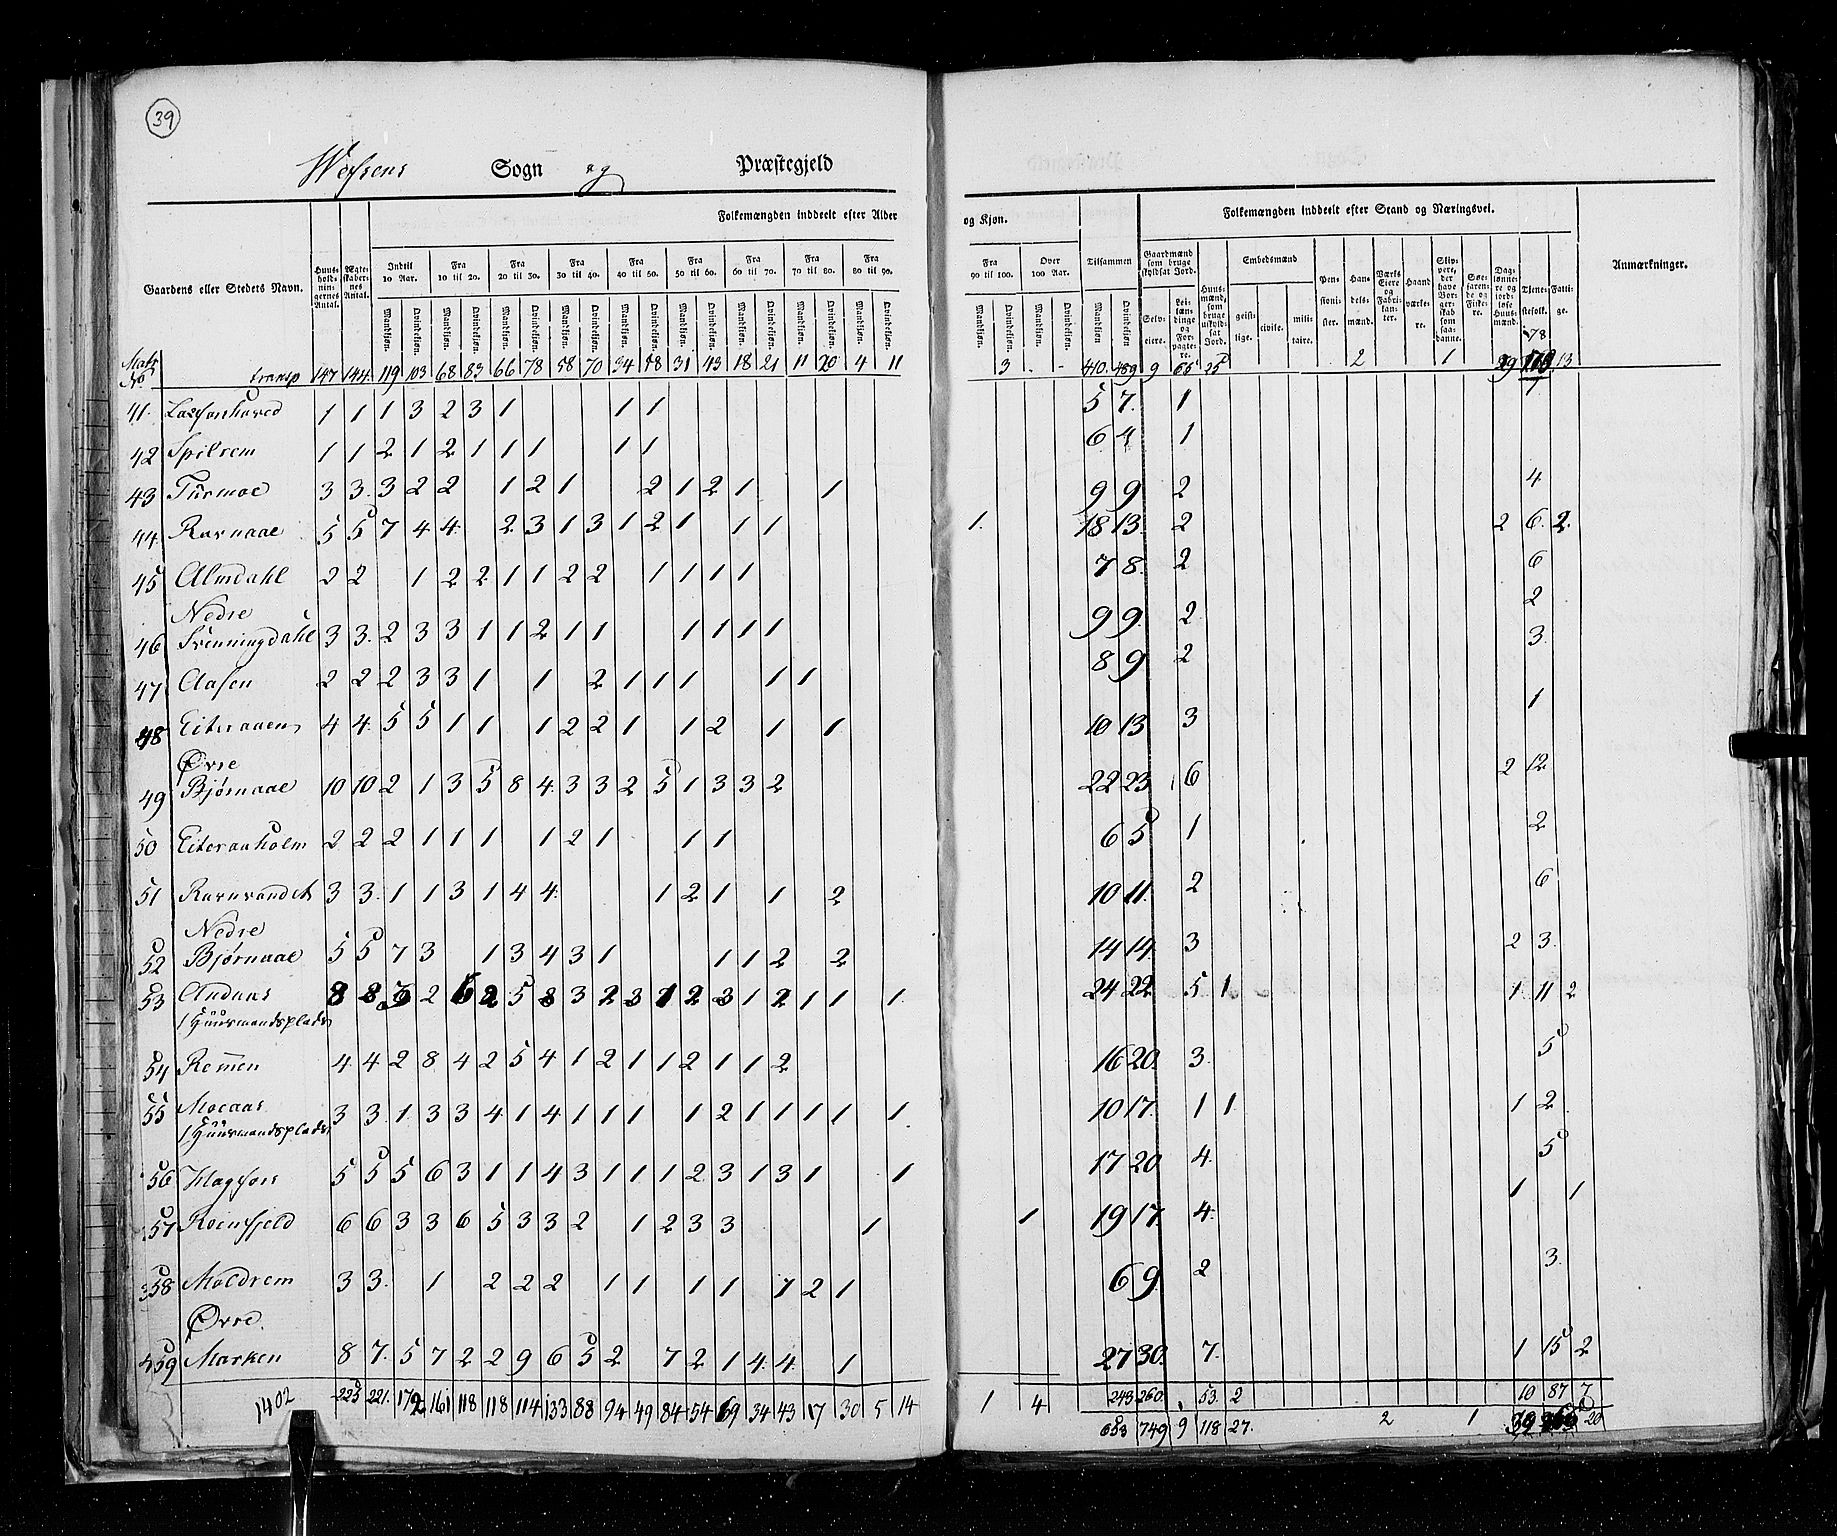 39
Sogn og Præstegjeld
Folkemængden inddeelt efter Alder og Kjøn.
Folkemængden inddeelt efter Stand og Næringsvei.
Gaardens eller Stedets Navn.
Huusholdningernes Antal.
Ægteskabernes Antal.
Indtil 10 Aar.
Fra 10 til 20.
Fra 20 til 30.
Fra 30 til 40.
Fra 40 til 50.
Fra 50 til 60.
Fra 60 til 70.
Fra 70 til 80.
Fra 80 til 90.
Fra 90 til 100.
Over 100 Aar.
Tilsammen
Mandkjøn. Qvindekjøn.
Gaardmænd som bruge skyldsat Jord.
Selveiere.
Leilændinge og Forpagtere.
Huusmænd, som bruge uskyldsat Jord.
Embedsmænd
geistlige. civile. militaire.
Pensionister.
Handelsmænd.
Værks Eiere og Fabrikanter.
Haandværkere.
Skippere, der have Borgerskab som saadanne.
Søefarende og Fiskere.
Daglønnere og jordløse Huusmænd.
Tjenestefolk.
Fattige.
Anmærkninger.
transp 147 144 119 103 68 83 66 78 58 70 34 48 31 43 18 21 11 20 4 11 3 410 489 9 65 25 2 1 29 13
41. 1 1 1 3 2 3 1 1 1 5 7. 1
42 Spilrem 1 1 2 1 2 1 1 1 1 1 6 4 1
43 3 3. 3 2 2 1 2 1 2 1 2 1 1 9 9 2 4
44. Ravnaae 5 5 7 4 4. 2 3 1 3 1 2 1 1 1 1. 18 13. 2 2 6. 2.
45 Almdahl 2 2 1 2 2 1 1 2 2 1 1 1 1 7 8. 2 6
Nedre
46 Svenningdahl 3 3. 2 3 3 1 1 2 1 1 1 1 1 1 9 9. 2. 2
47 Aasen 2 2 2 3 3 1 1 2 1 1 1 1 1 8 9 2 3.
48 Eiteraaen 4 4. 5 5 1 1 1 2 2 1 1 2 1 1 10 13 3 1
Øvre
49 Bjørnaae 10 10 2 1 3 5 8 4. 3 3 2 5 1 3 3 2 22 23 6 2 12
50 Eiteraaholm 2 2 2 1 1 1 1 2 1 1 1 6 5 1 2
51 Ravnvandet 3 3. 1 1 3 1 4 4. 1 2 1 1 2 10 11. 2 6
Nedre
52 Bjørnaae 5 5 7 3 1 3 4 3 1 1 1 2 2 14 14. 3 2 3.
53 Andaas 8 8 3 2 6 2 5 8 3 2 3 1 2 3 1 2 1 1 1 24 22 5 1 1 11 2
1 Huusmandsplads
54 Remen 4 4 2 8 4 2 5 4 1 2 1 1 2 1 1 2 16 20. 3. 5
55 Moeaas 3 3 1. 3 3 4 1 4 1 1 1 1 2 1 1 1 1 1 10 17. 1 1 1 2
1 Huusmandsplads
56 Hagfors 5 5 5 6 3 1 1 4 3 1 1 1 2 3 1 3 1 1 17 20 4. 5
57 6 6 3 3 6 5 3 3 2 1 2 3 3 1 1 19 17. 4. 1 1
58 Moldrem 3 3. 1 2 2 2 1 1 1 1 1 2 1 6 9. 2 3.
Øvre.
59 Marken 8 7. 5 7 2 2 9 6 5 2 7 2 1 4. 4. 1 27 30. 7. 1 15 2
1402 225 221. 172 161 118 118 114 133 88 94 49 84 54 69 34 43 17 30 5 14 1 4 243 260 53 2 10 87 7
653 749 9 118 27. 2 1 39 20